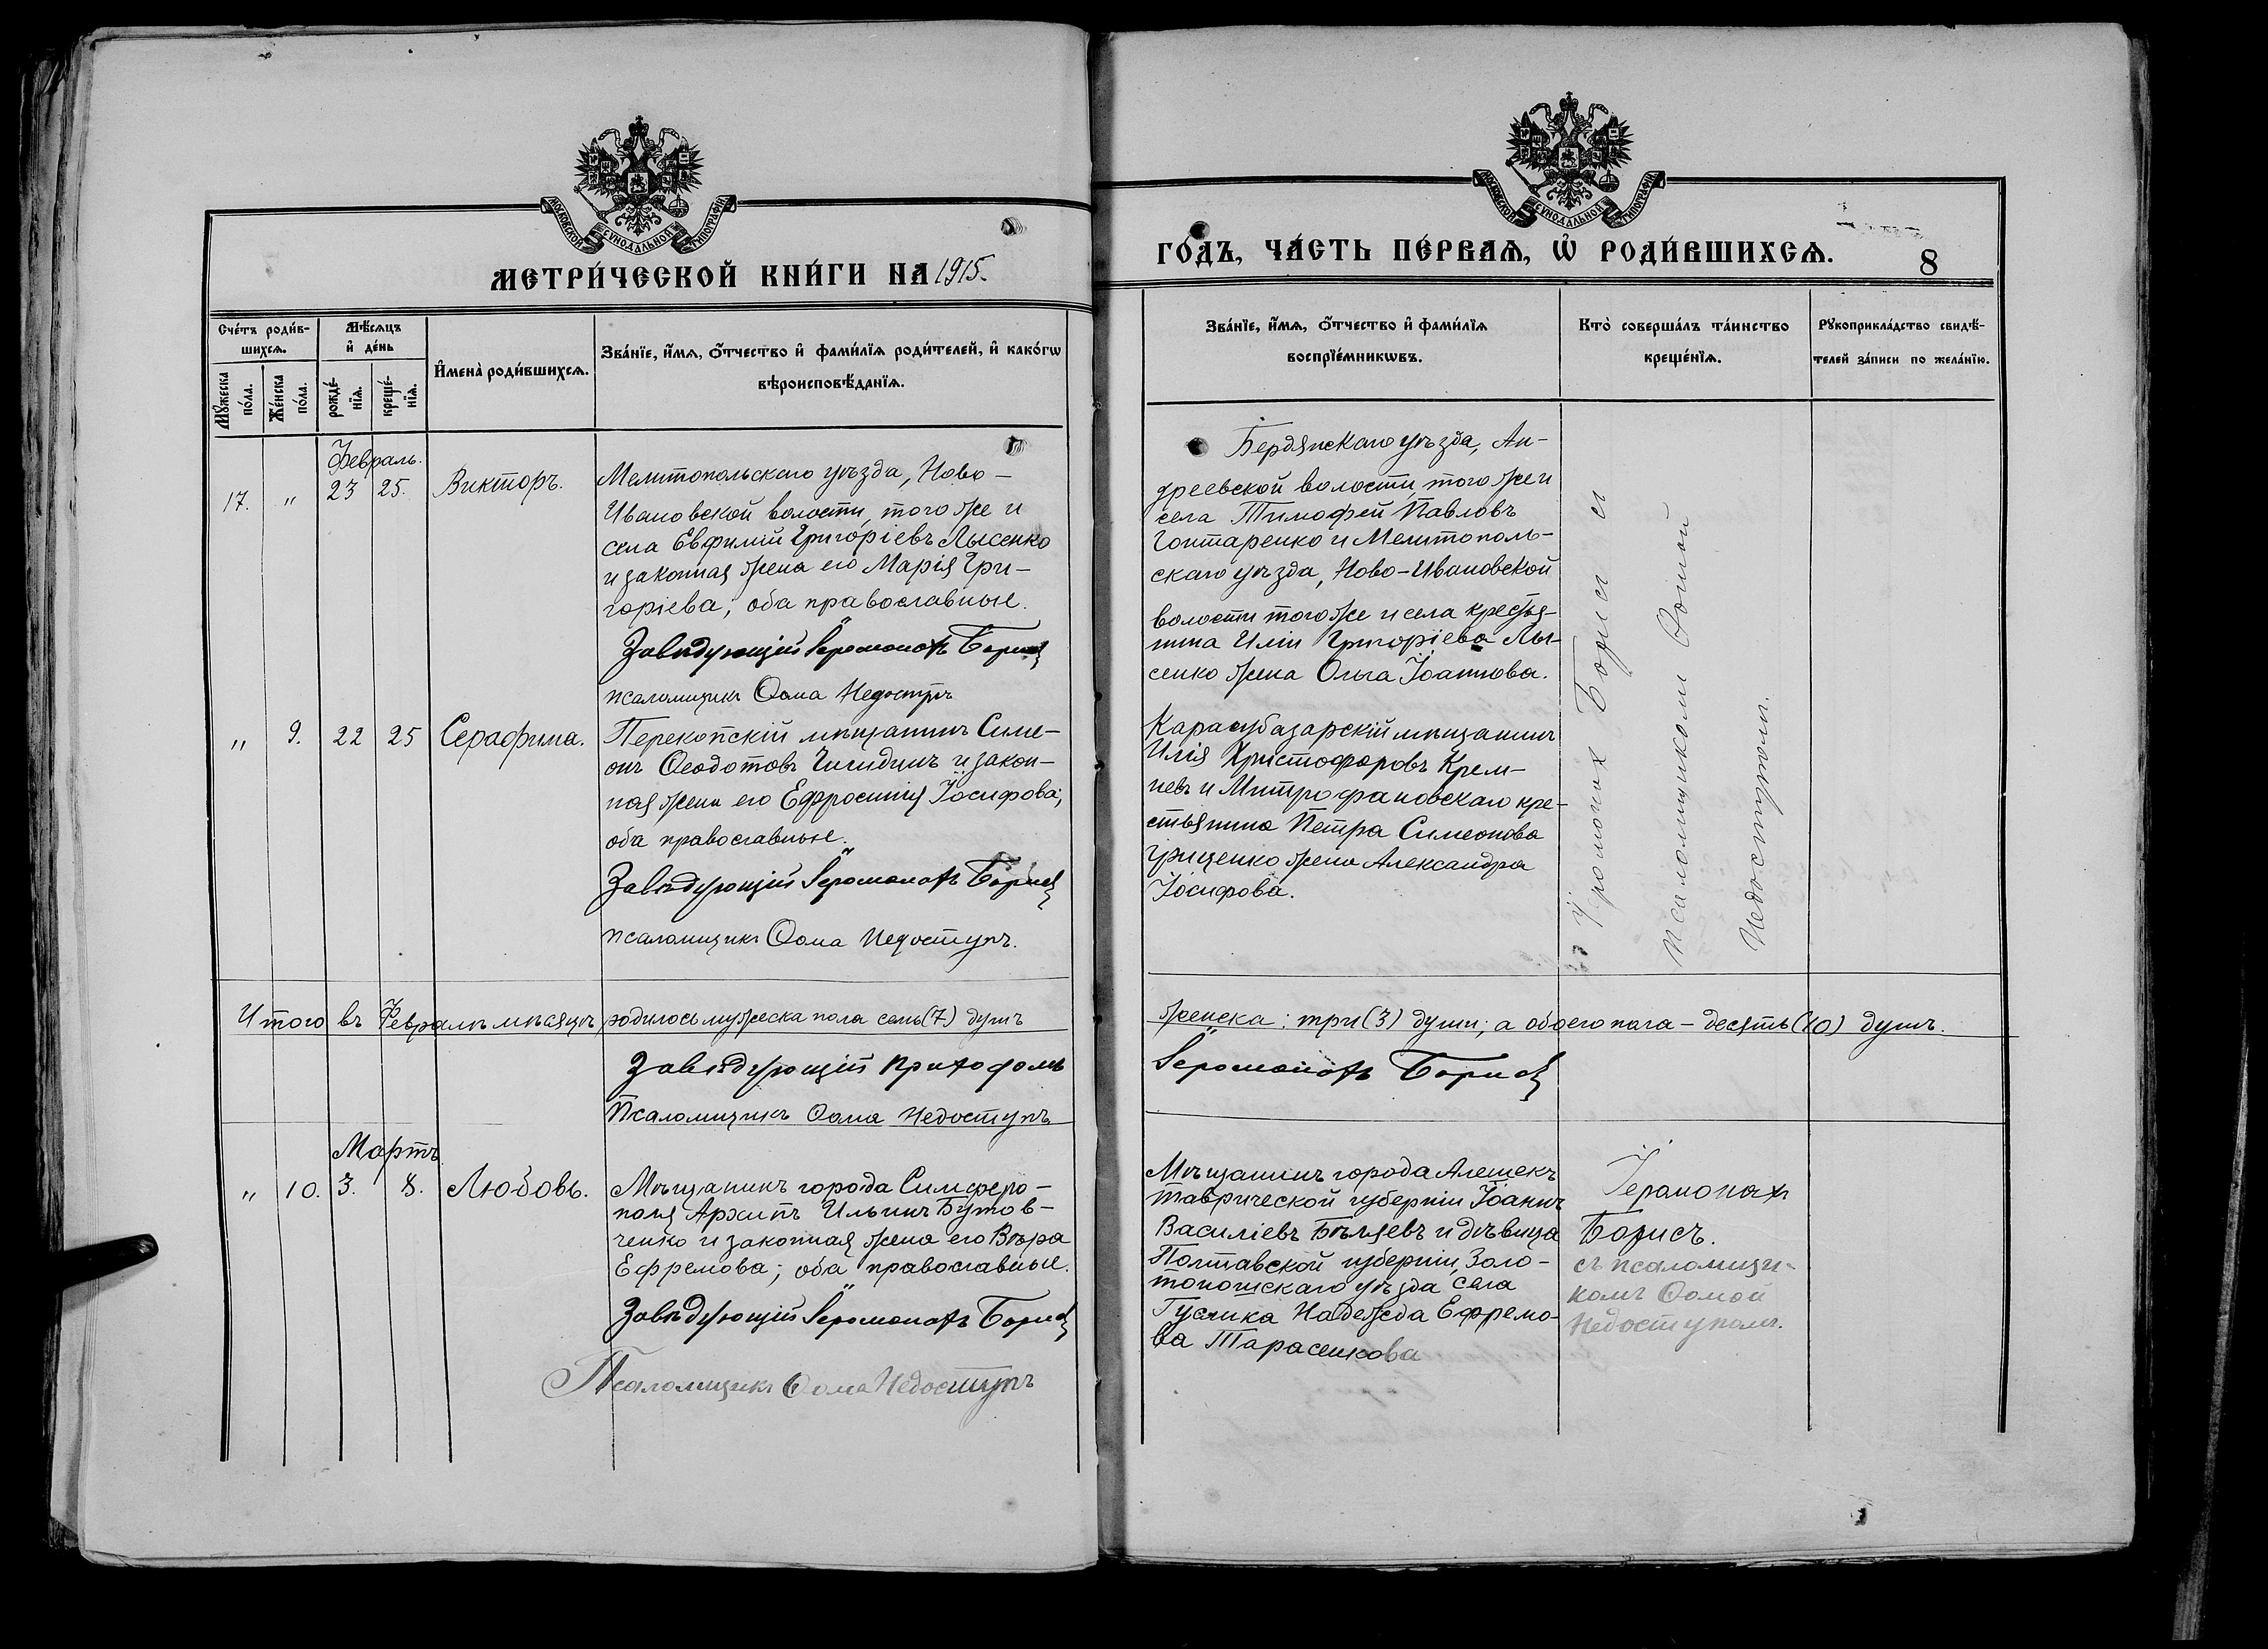 МОСКОВСКОЙ СѴНОДАЛЬНОЙ ТИПОГРАФІИ
МЕТРИ́ЧЕСКОЙ КНИ́ГИ НА 1915.
Сче́тъ роди́в-
шихсѧ.
Мѣ́сѧцъ
и҆ де́нь
И҆мена̀ роди́вшихсѧ.
Зва́нїе, и҆́мѧ, ѻ҆́тчество и҆ фами́лїѧ роди́телей, и҆ како́гѡ
вѣроисповѣ́данїѧ.
Мꙋ́жеска
по́ла.
Же́нска
по́ла.
рожде́-
нїѧ.
креще́-
нїѧ.
Февраль.
17. " 23 25. Викторъ.
Мелитопольскаго уѣзда, Ново-
Ивановской волости, того же и
села Евфимій Григоріевъ Лысенко
и законная жена его Марія Гри-
горіева; оба православные.
Завѣдующій Іеромонахъ Борисъ
псаломщикъ Ѳома Недоступъ
" 9. 22 25 Серафима.
Перекопскій мѣщанинъ Симе-
онъ Ѳеодотовъ и закон-
ная жена его Ефросинія Іосифова;
оба православные.
Завѣдующій Іеромонахъ Борисъ
псаломщикъ Ѳома Недоступъ.
Итого въ Февралѣ мѣсяцѣ родилось мужеска пола семь (7) душъ
Завѣдующій Приходомъ
Псаломщикъ Ѳома Недоступъ
Мартъ
" 10. 3. 8. Любовь.
Мѣщанинъ города Симферо-
поля Архипъ Ильинъ Бутов-
ченко и законная жена его Вѣра
Ефремова; оба православные.
Завѣдующій Іеромонахъ Борисъ
Псаломщикъ Ѳома Недоступъ
МОСКОВСКОЙ СѴНОДАЛЬНОЙ ТИПОГРАФІИ
ГО́ДЪ, ЧА́СТЬ ПЕ́РВАѦ, Ѽ РОДИ́ВШИХСѦ.
8
Зва́нїе, и҆́мѧ, ѻ҆́тчество и҆ фами́лїѧ
воспрїе́мникѡвъ.
Кто̀ соверша́лъ та́инство
креще́нїѧ.
Рꙋкоприкла́дство свидѣ́-
телей за́писи по жела́нїю.
Бердянскаго уѣзда, Ан-
дреевской волости, того же и
села Тимофей Павловъ
Гонтаренко и Мелитополь-
скаго уѣзда, Ново-Ивановской
волости того же и села крестья-
нина Иліи Григоріева Лы-
сенко жена Ольга Іоаннова.
Карасубазарскій мѣщанинъ
Илія Христофоровъ Крем-
невъ и Митрофановскаго кре-
стьянина Петра Симеонова
Гриценко жена Александра
Іосифова.
Іеромонах Борис с
псаломщиком Ѳомой
Недоступом.
женска: три (3) души; а обоего пола - десять (10) душъ.
Іеромонахъ Борисъ
Мѣщанинъ города Алешекъ
Таврической губерніи Іоаннъ
Василіевъ Бѣляевъ и дѣвица
Полтавской губерніи, Золо-
тоношскаго уѣзда села
Гусляка Надежда Ефремо-
ва Тарасенкова
Іеромонахъ
Борисъ.
съ псаломщи-
комъ Ѳомой
Недоступомъ.